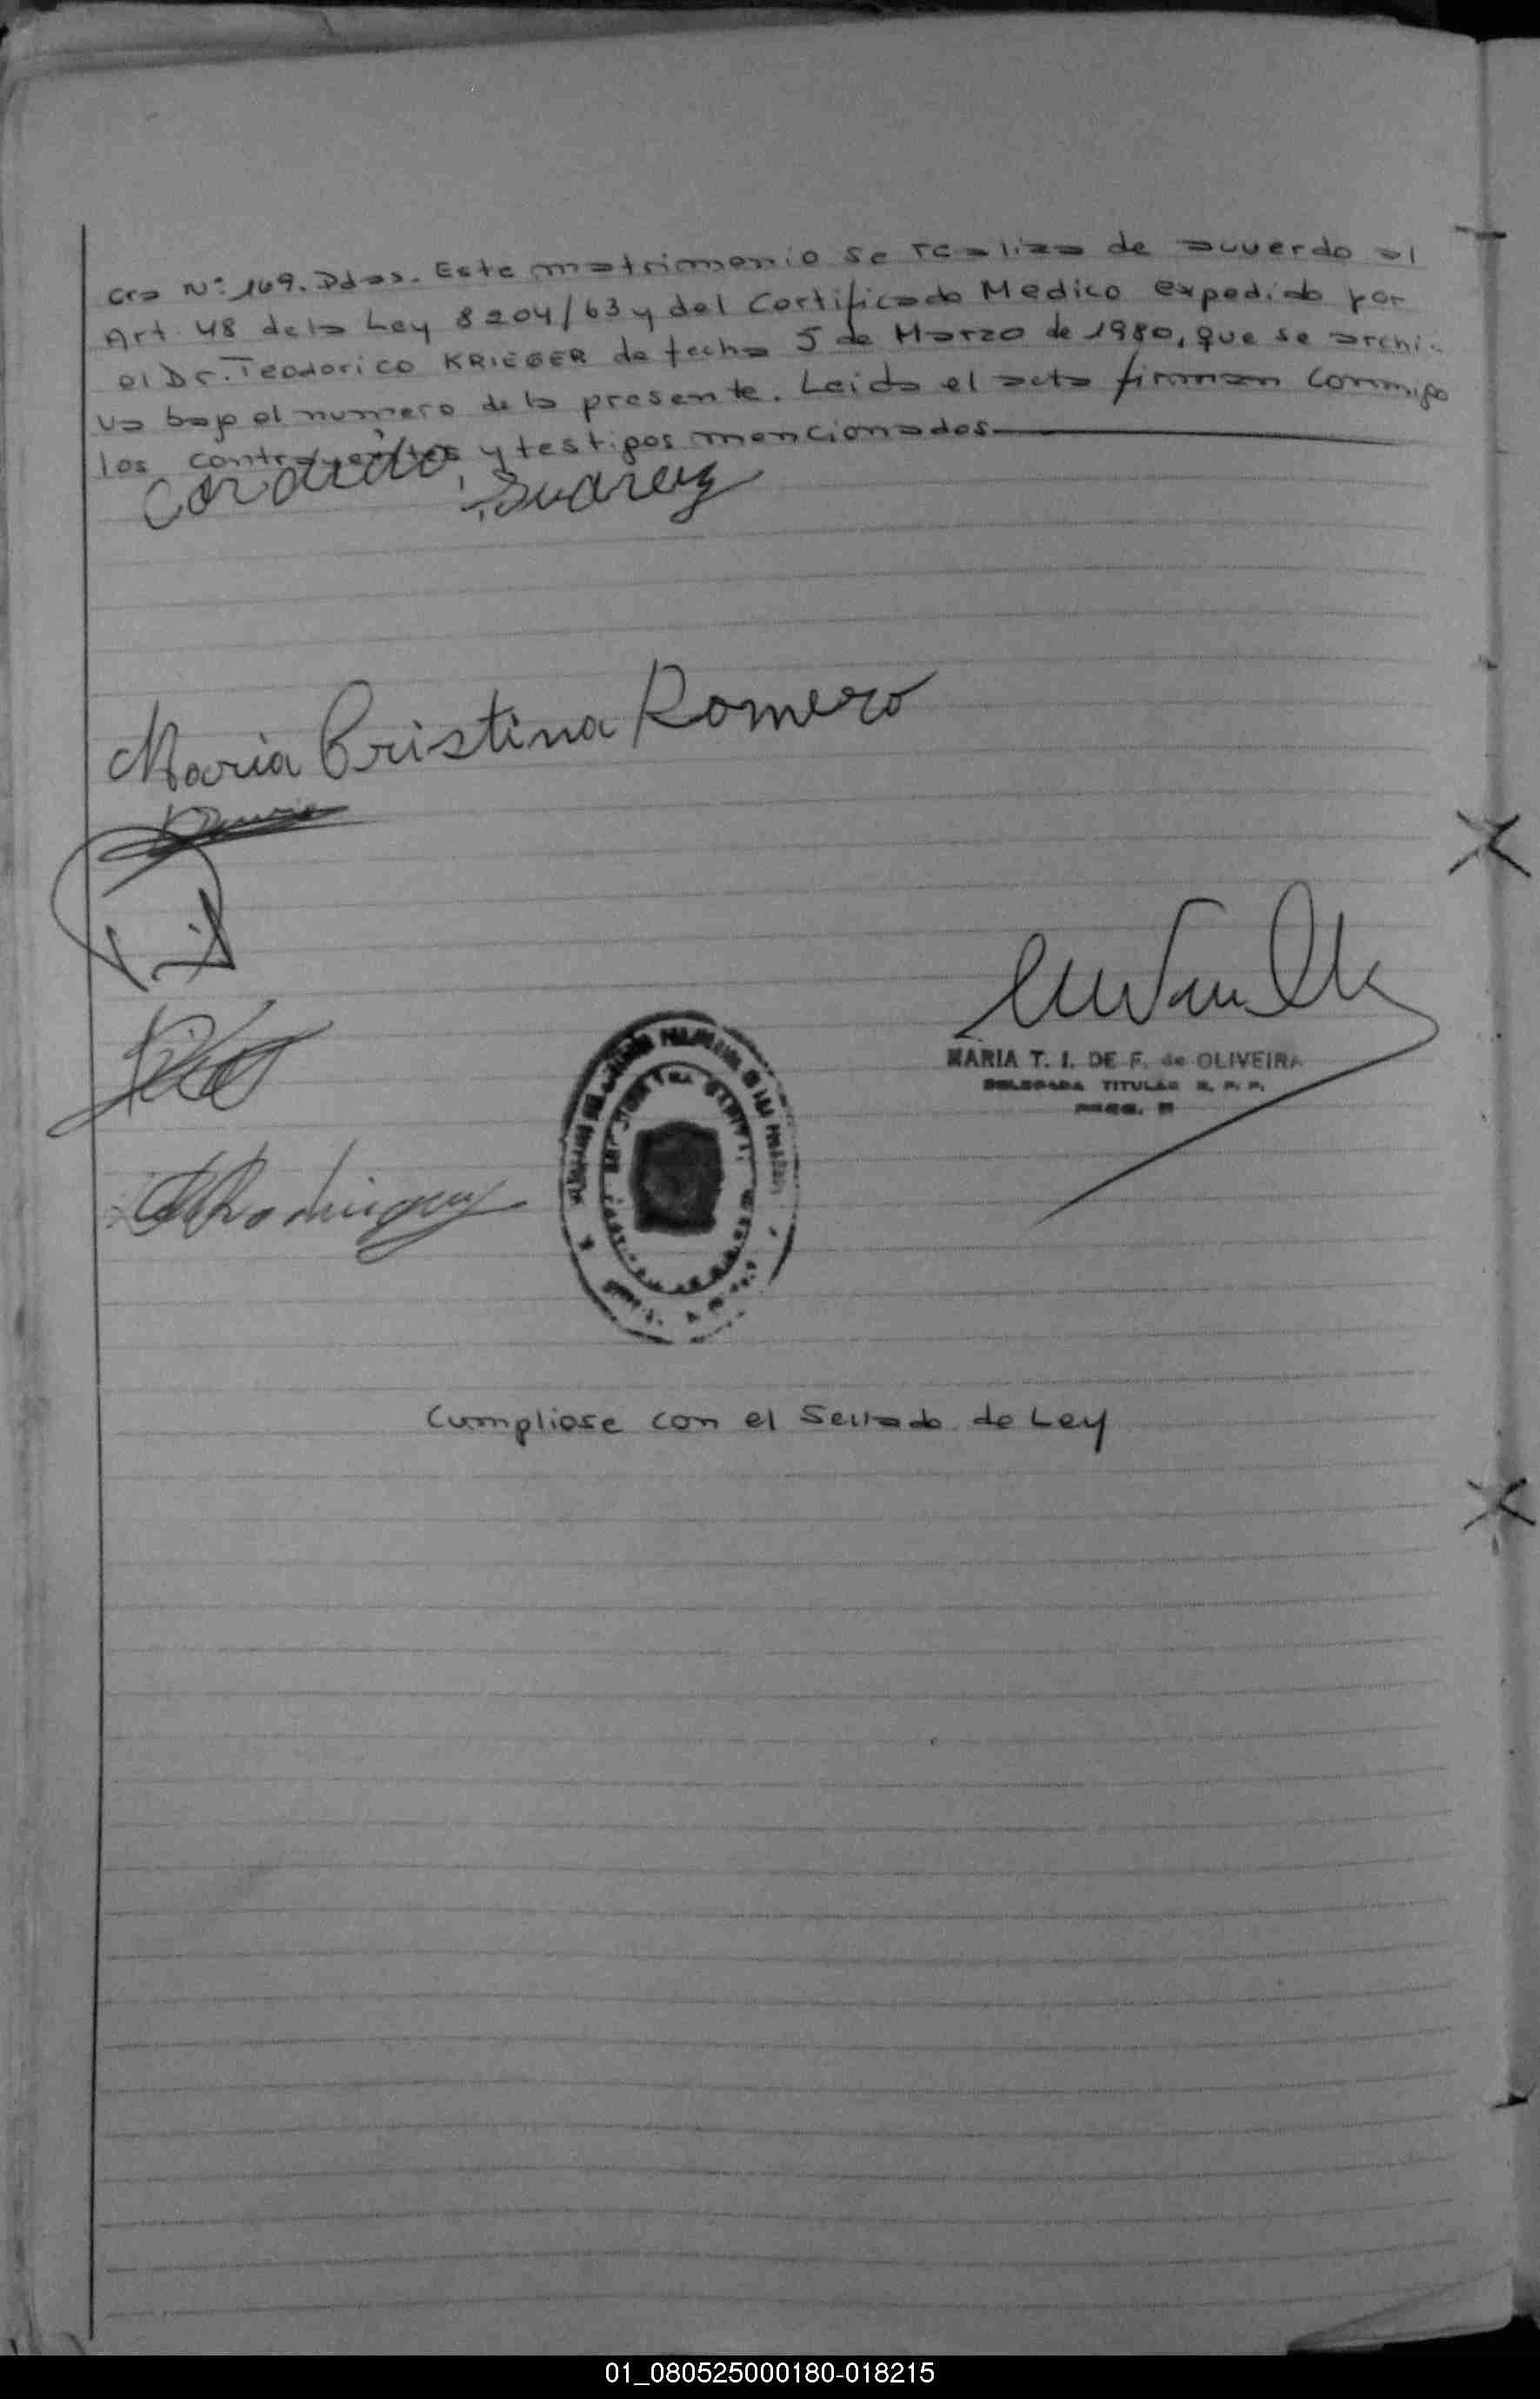 cra Nº 169. Ddas. Este matrimonio se realiza de acuerdo al
Art 48 de la Ley 8204/63 y del Certificado Medico expedido por
el Dr. Teodorico KRIEGER de fecha 5 de Marzo de 1980, que se archi-
va bajo el numero de la presente. Leida el acta firman conmigo
los contrayentes y testigos mencionados
Suarez
Maria Cristina Romero
MARIA T. I. DE F. de OLIVEIRA
DELEGADA TITULAR R. P. P.
Rodriguez
Cumpliose con el Sellado de Ley
01_080525000180-018215